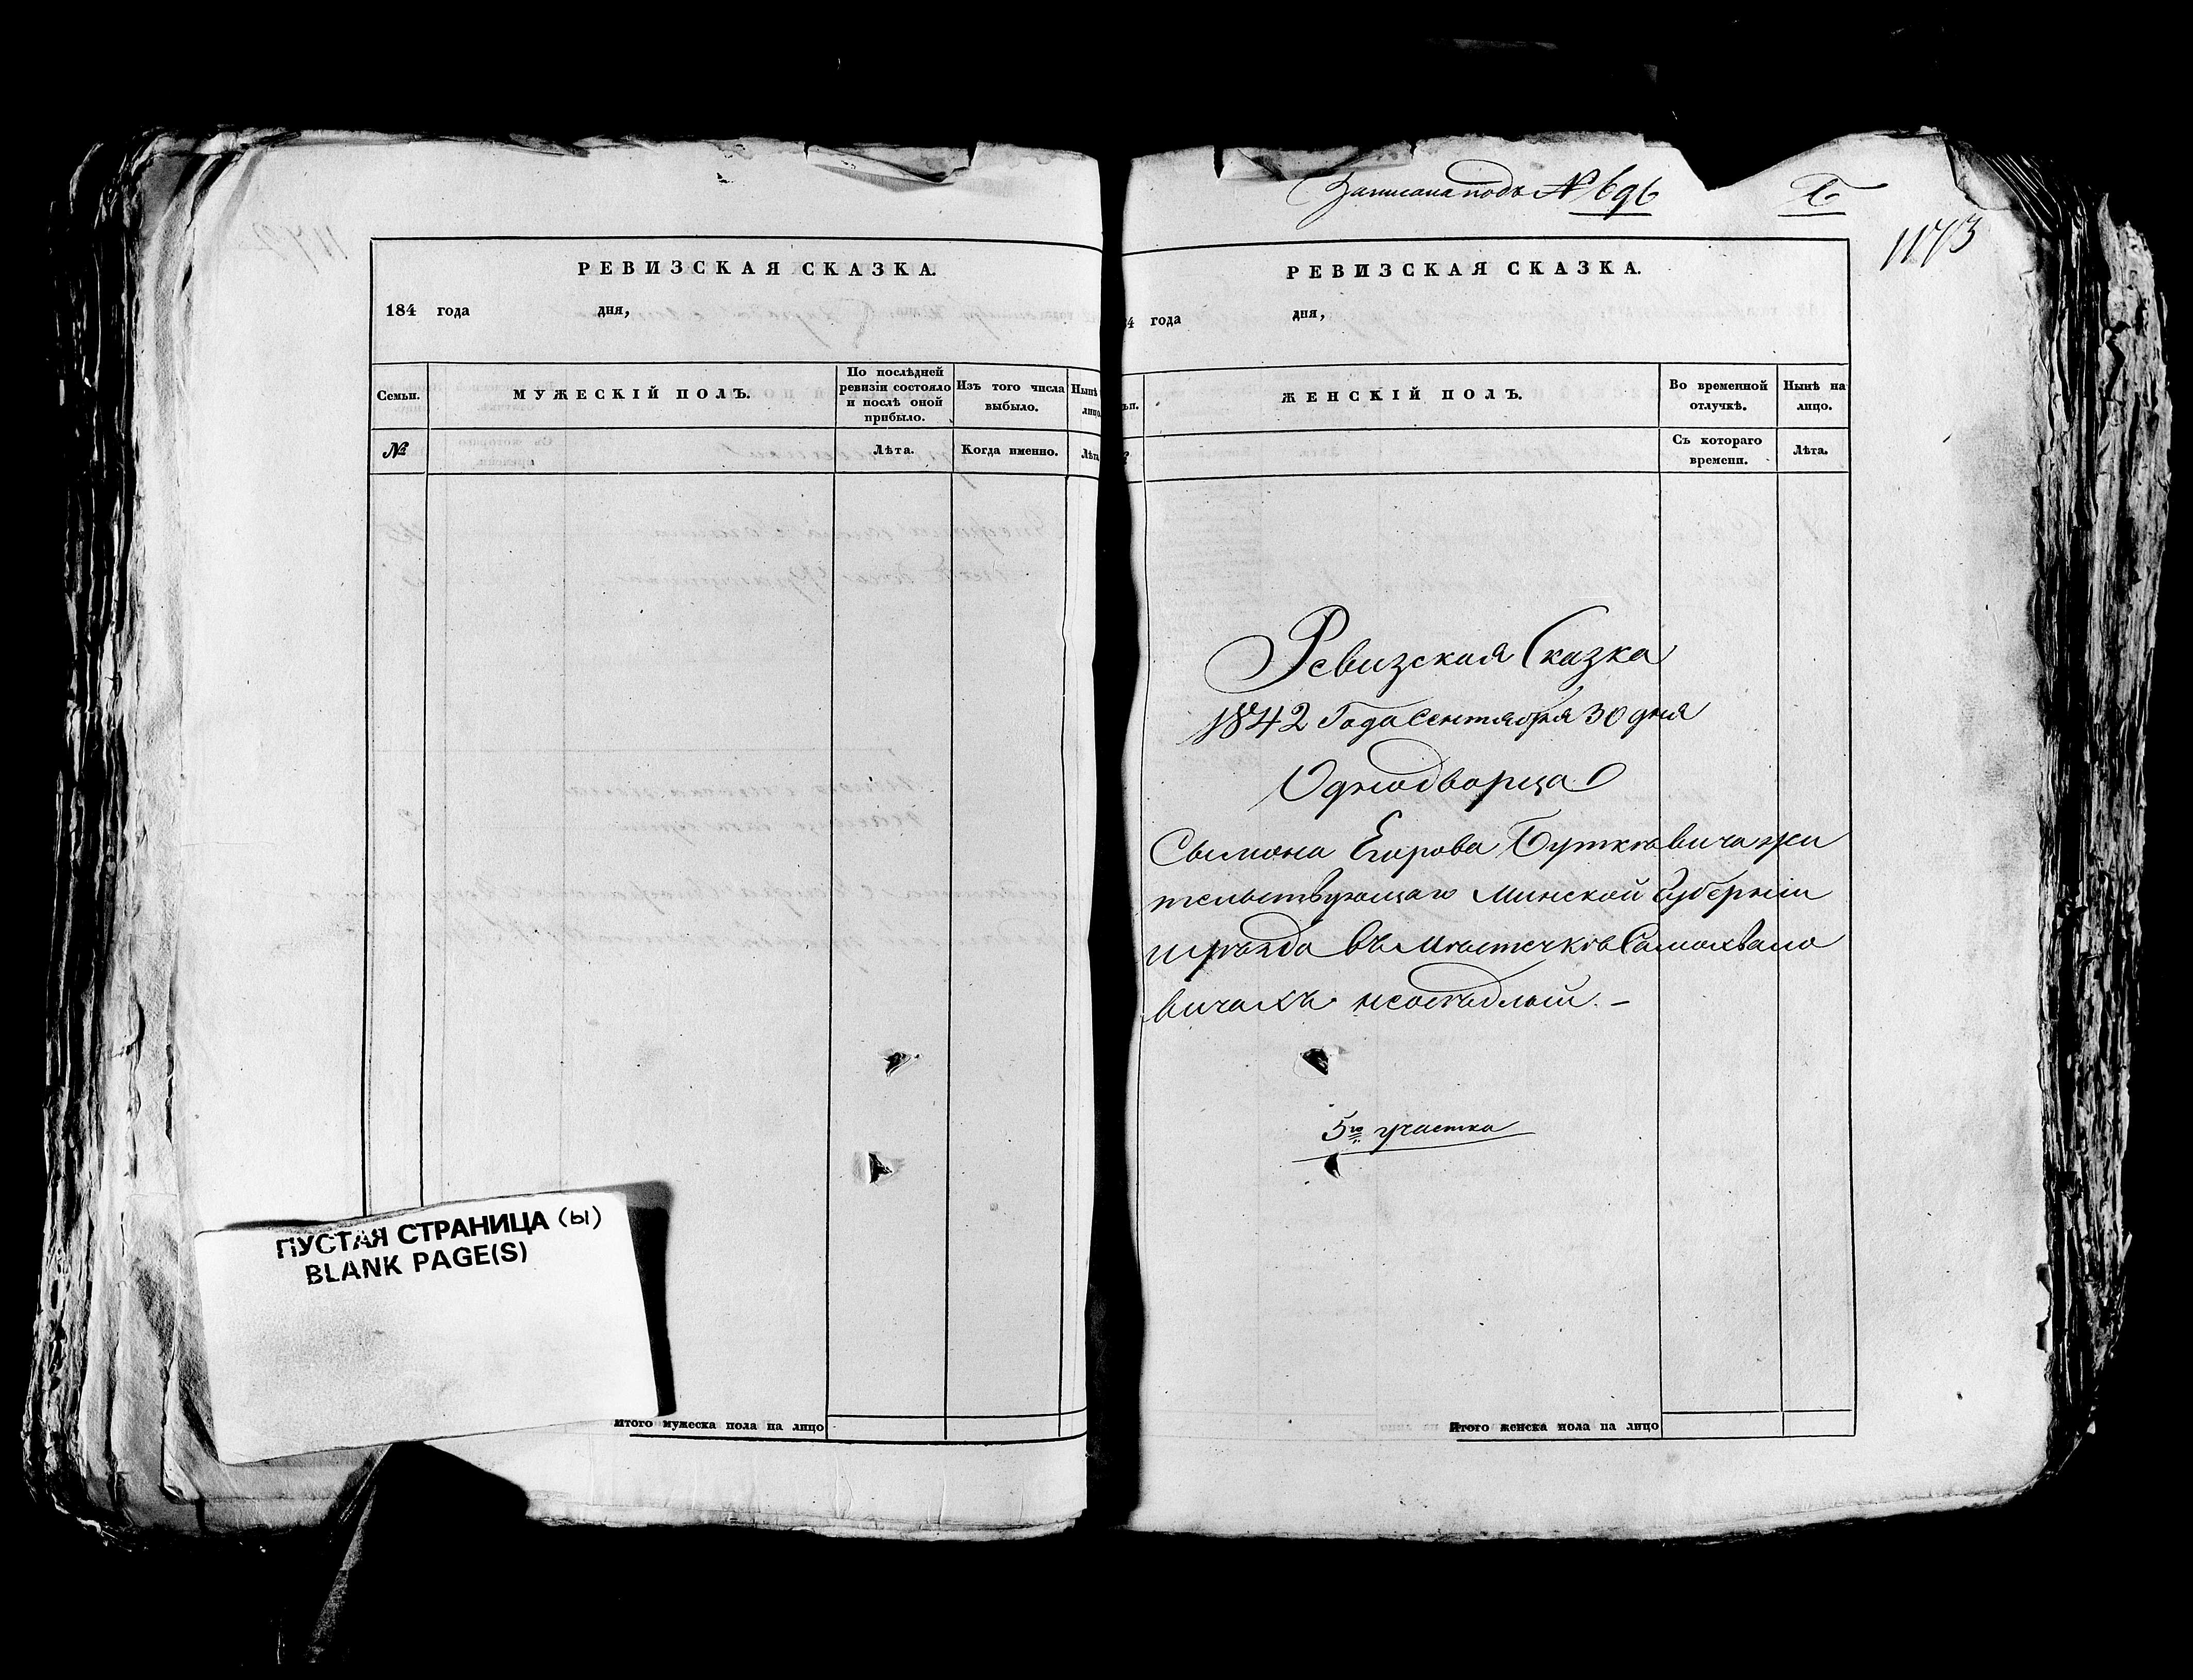 РЕВИЗСКАЯ СКАЗКА.
184 года дня,
Семьи.
МУЖЕСКІЙ ПОЛЪ.
По послѣдней ревизіи состояло и послѣ оной прибыло.
Изъ того числа выбыло.
Нынѣ
лицо.
№
Лѣта.
Когда именно.
Лѣта
ПУСТАЯ СТРАНИЦА (ы)
BLANK PAGE(S)
Итого мужеска пола на лицо
Записана подъ № 696
Б
1173
РЕВИЗСКАЯ СКАЗКА.
4 года дня,
ЖЕНСКІЙ ПОЛЪ.
Во временной отлучкѣ.
Нынѣ на лицо.
Съ котораго времени.
Лѣта.
Ревизская Сказка
1842 Года Сентября 30 дня
Однодворца
Сымона Егорова Буткѣвича жи
тельствующаго Минской Губерніи
и уѣзда въ мѣстечкѣ Самохвало
вичахъ неосѣдлый. –
5го участка
Итого женска пола на лицо